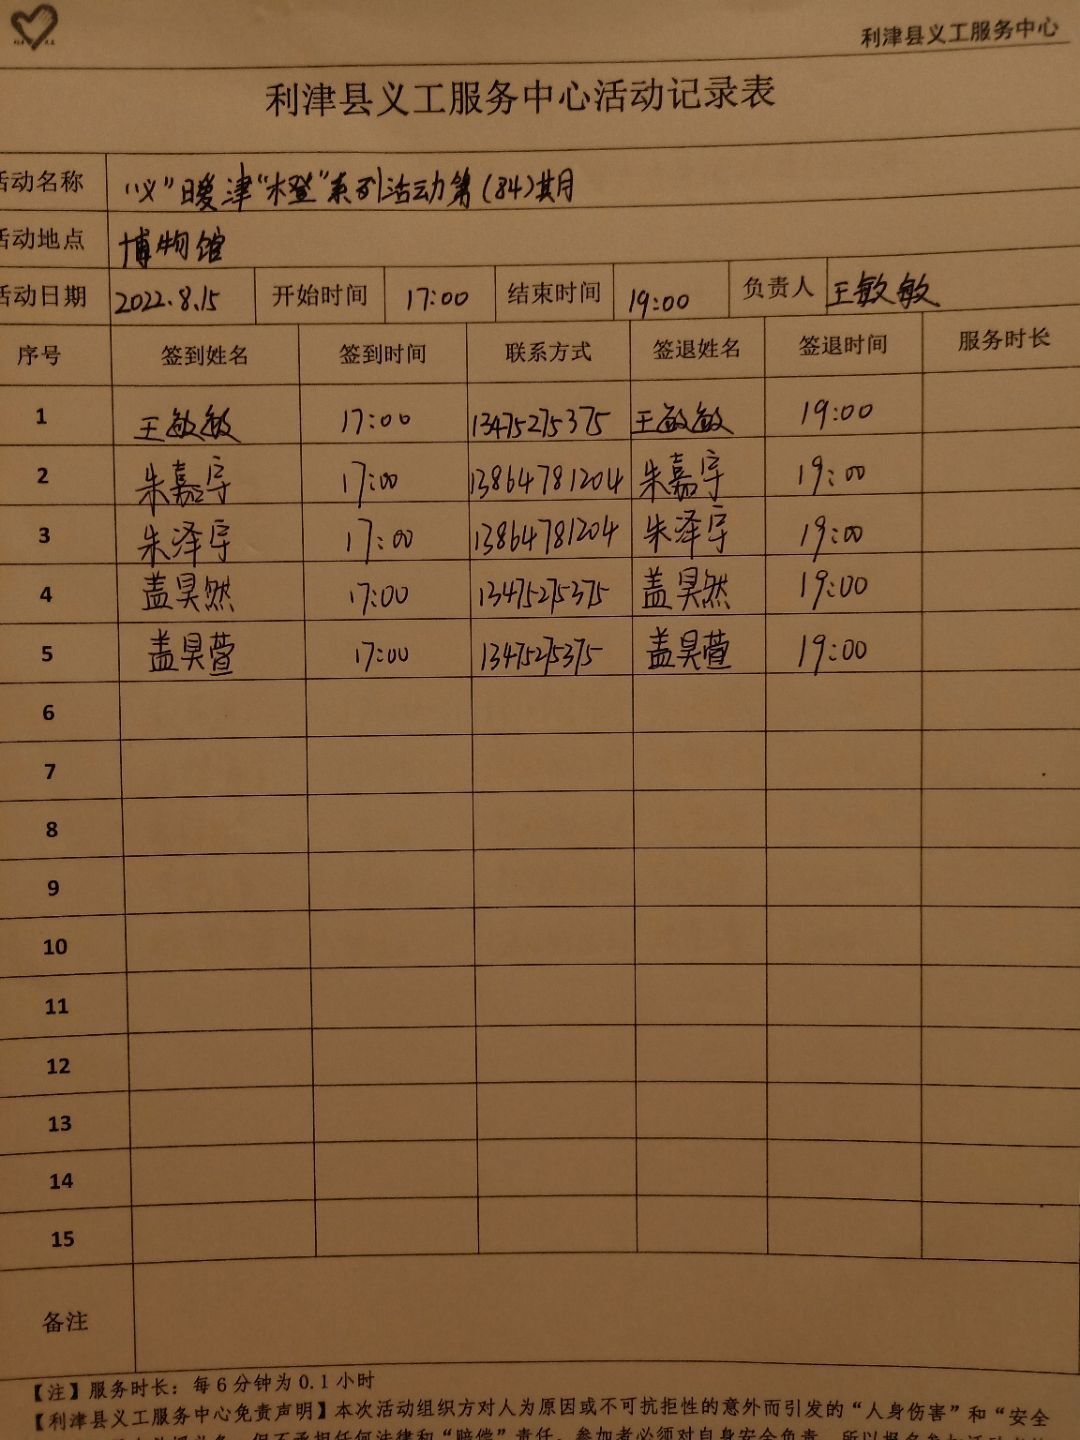 利津县义工服务中心
利津县义工服务中心活动记录表
活动名称 “义”暖津“橙”系列活动第(84)期
活动地点 博物馆
活动日期 2022.8.15 开始时间 17:00 结束时间 19:00 负责人 王敏敏
序号 签到姓名 签到时间 联系方式 签退姓名 签退时间 服务时长
1 王敏敏 17:00 13475275375 王敏敏 19:00
2 朱嘉宇 17:00 13864781204 朱嘉宇 19:00
3 朱泽宇 17:00 13864781204 朱泽宇 19:00
4 盖昊然 17:00 13475275375 盖昊然 19:00
5 盖昊萱 17:00 13475275375 盖昊萱 19:00
6
7
8
9
10
11
12
13
14
15
备注
【注】服务时长：每6分钟为0.1小时
【利津县义工服务中心免责声明】本次活动组织方对人为原因或不可抗拒性的意外而引发的“人身伤害”和“安全
但不承担任何法律和“赔偿”责任。参加者必须对自身安全负责，所以报名参加活动